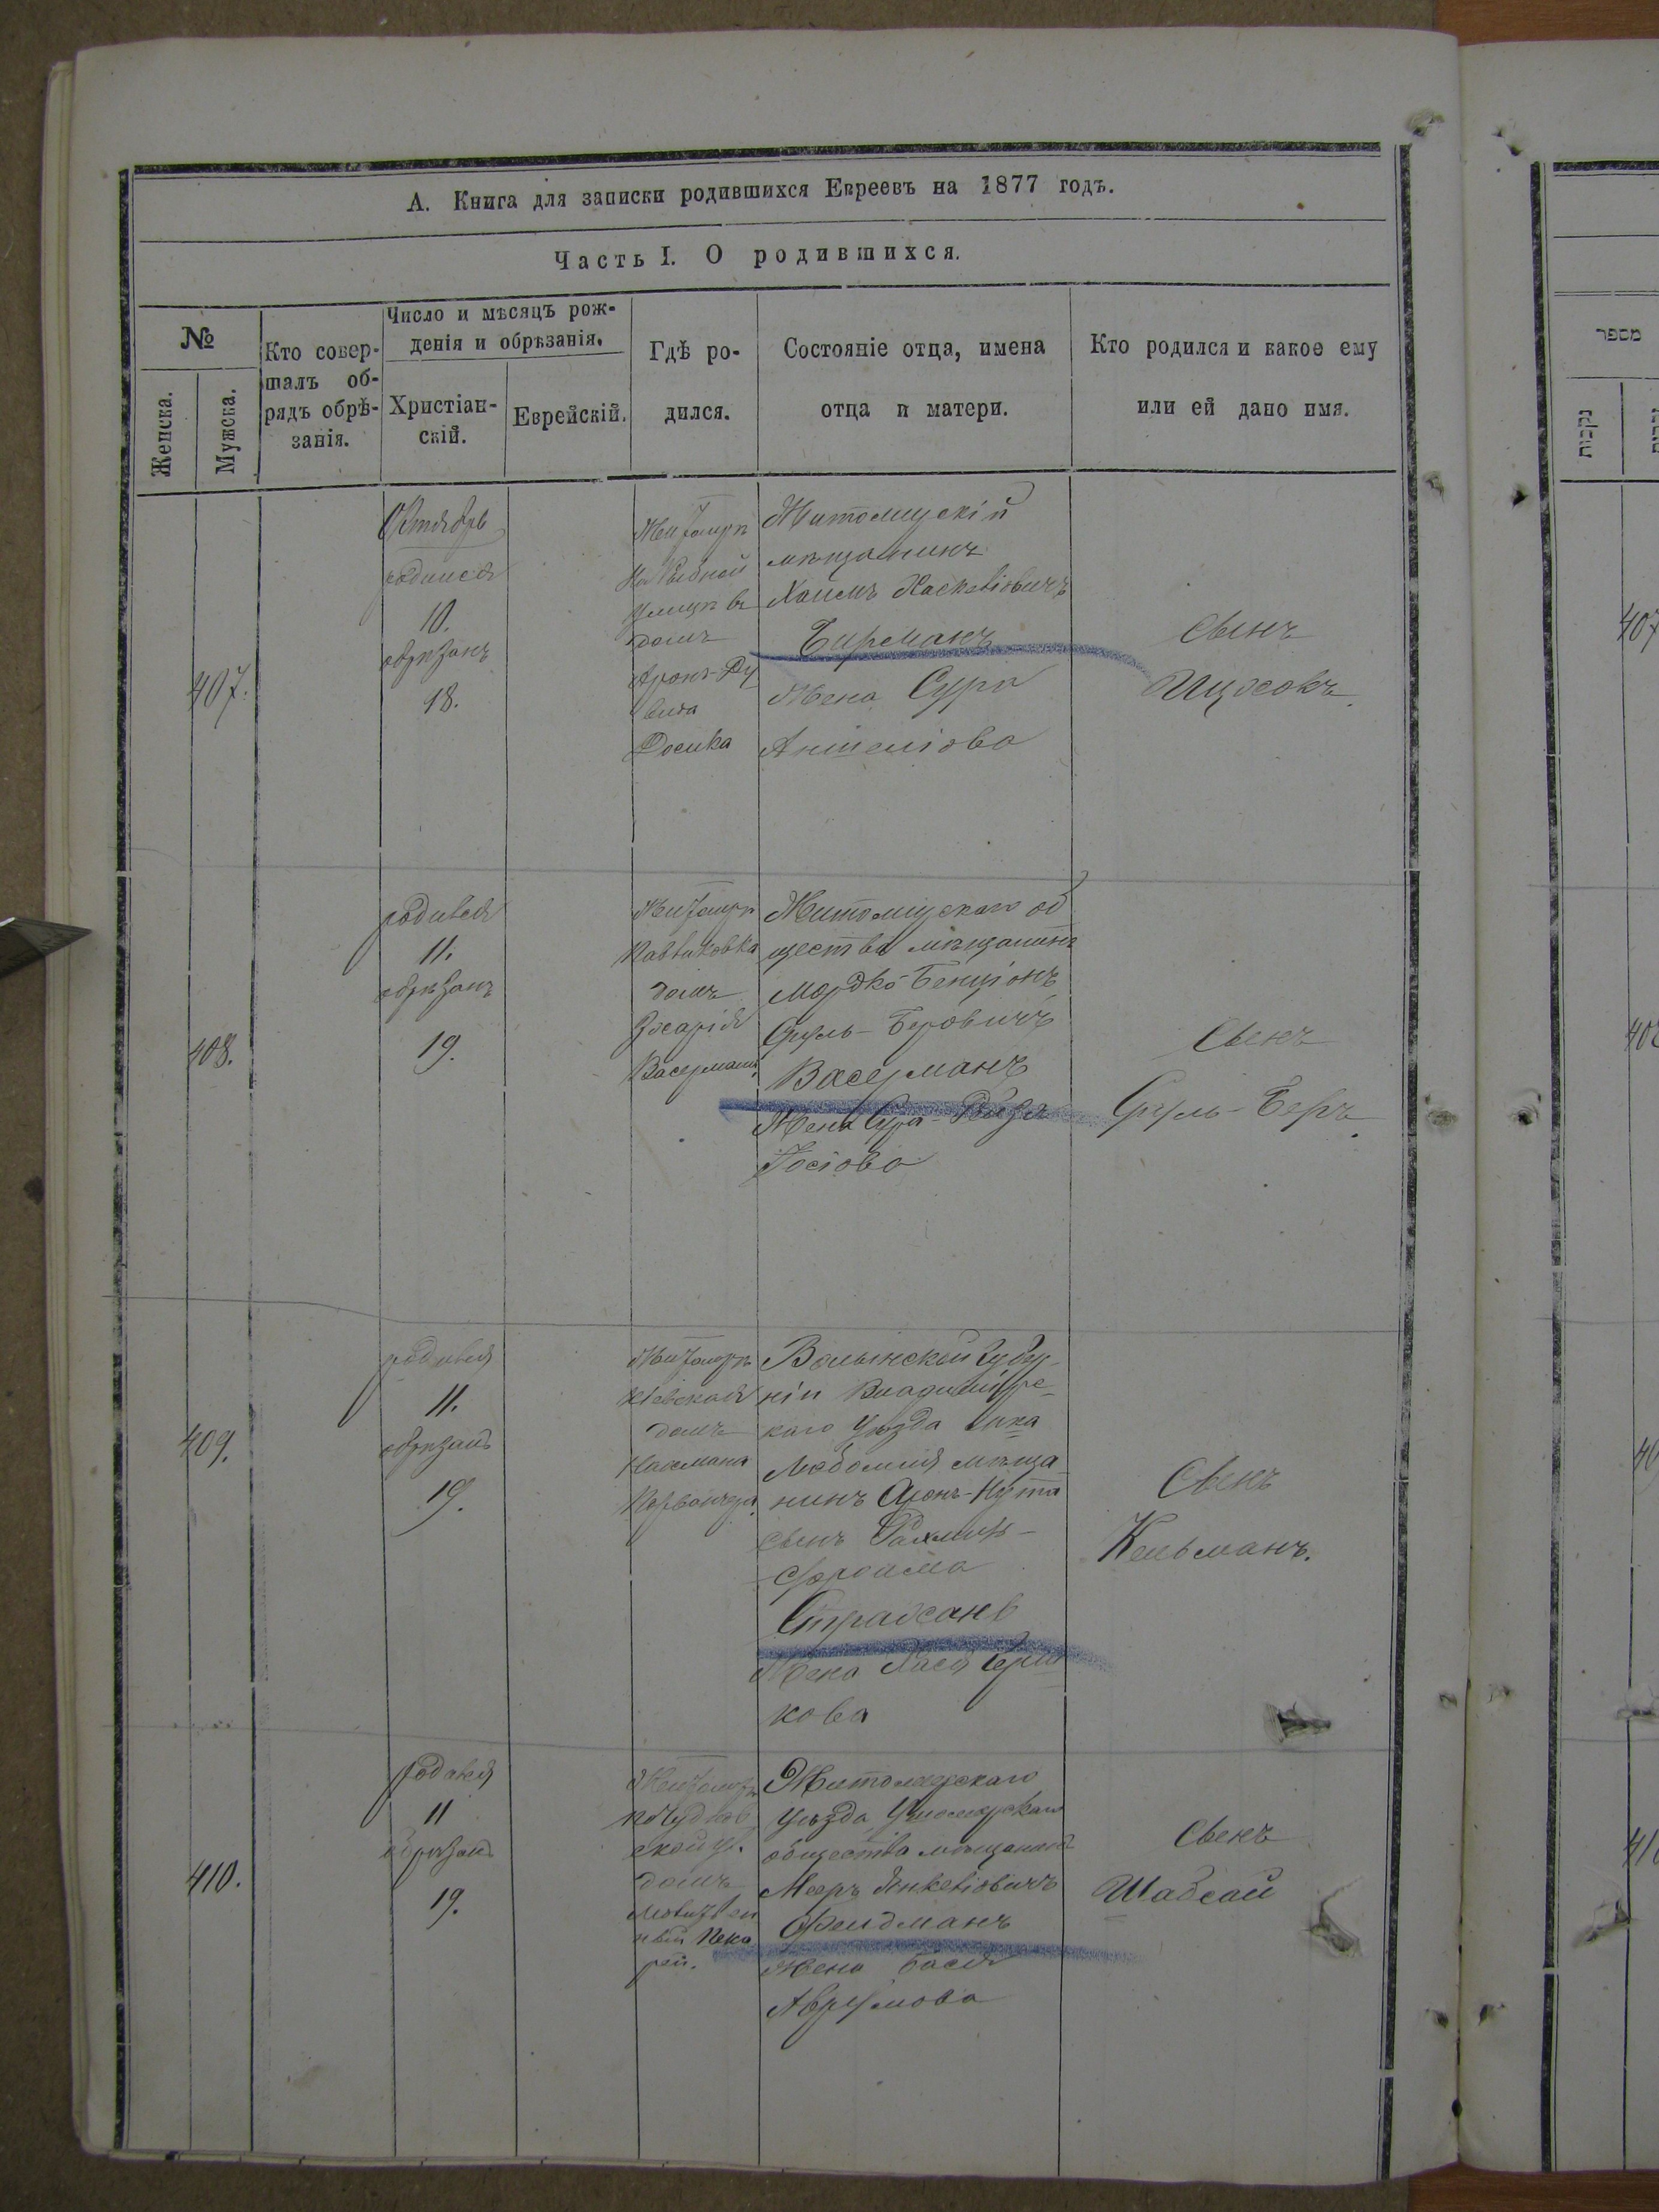 А. Книга для записки родившихся Евреевъ на 1877 годъ.
Часть I. О родившихся.
№
Женска.
Мужска.
Кто совер-
шалъ об-
рядъ обрѣ-
занія.
Число и мѣсяцъ рож-
денія и обрѣзанія.
Христіан-
скій.
Еврейскій.
Гдѣ ро-
дился.
Состояніе отца, имена
отца и матери.
Кто родился и какое ему
или ей дано имя.
מספר
נקבות
407.
Октябрь
родился
10.
обрѣзанъ
18.
Житомирѣ
На Рыбной
улицѣ въ
домѣ
Аронъ-Ду
вида
Житомирскій
мѣщанинъ
Хаимъ Хаскеліовичъ
Бирманъ
Жена Сура
Аншеліова
Сынъ
Ицхокъ.
407
408.
родился
11.
обрѣзанъ
19.
Житомирѣ
Павликовка
домъ
Васермана.
Житомірскаго об
щества мѣщанинъ
Мордко-Бенціонъ
Сруль-Беровичъ
Васерманъ
Жена Сура-Рейзя
Іосіова
Сынъ
Сруль-Беръ.
408
409.
родился
11.
обрѣзанъ
19.
Житомирѣ
Кіевская
домъ
Нахмана
Волынской Губер-
ніи Владимірс-
каго Уѣзда
Любомля мѣща
нинъ Аронъ-Нута
сынъ Рахмиль-
Фроима
Жена Хася Герш
кова
Сынъ
Кельманъ.
40
410.
родился
11
обрѣзанъ
19.
Житомирѣ
по Чуднов
ской ул.
домъ
Пека
рей.
Житомирскаго
Уѣзда, Ушомирскаго
общества мѣщанинъ
Мееръ Янкеліовичъ
Фелдманъ
Жена Бася
Аврумова
Сынъ
Шабсай
410